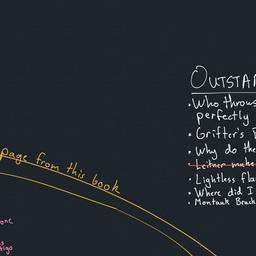 page from this book
OUTSTAN
• Who throws
perfectly
• Grifter's
• Why do the
• Leitner make
• Lightless fla
• Where did I
• Montauk Brack